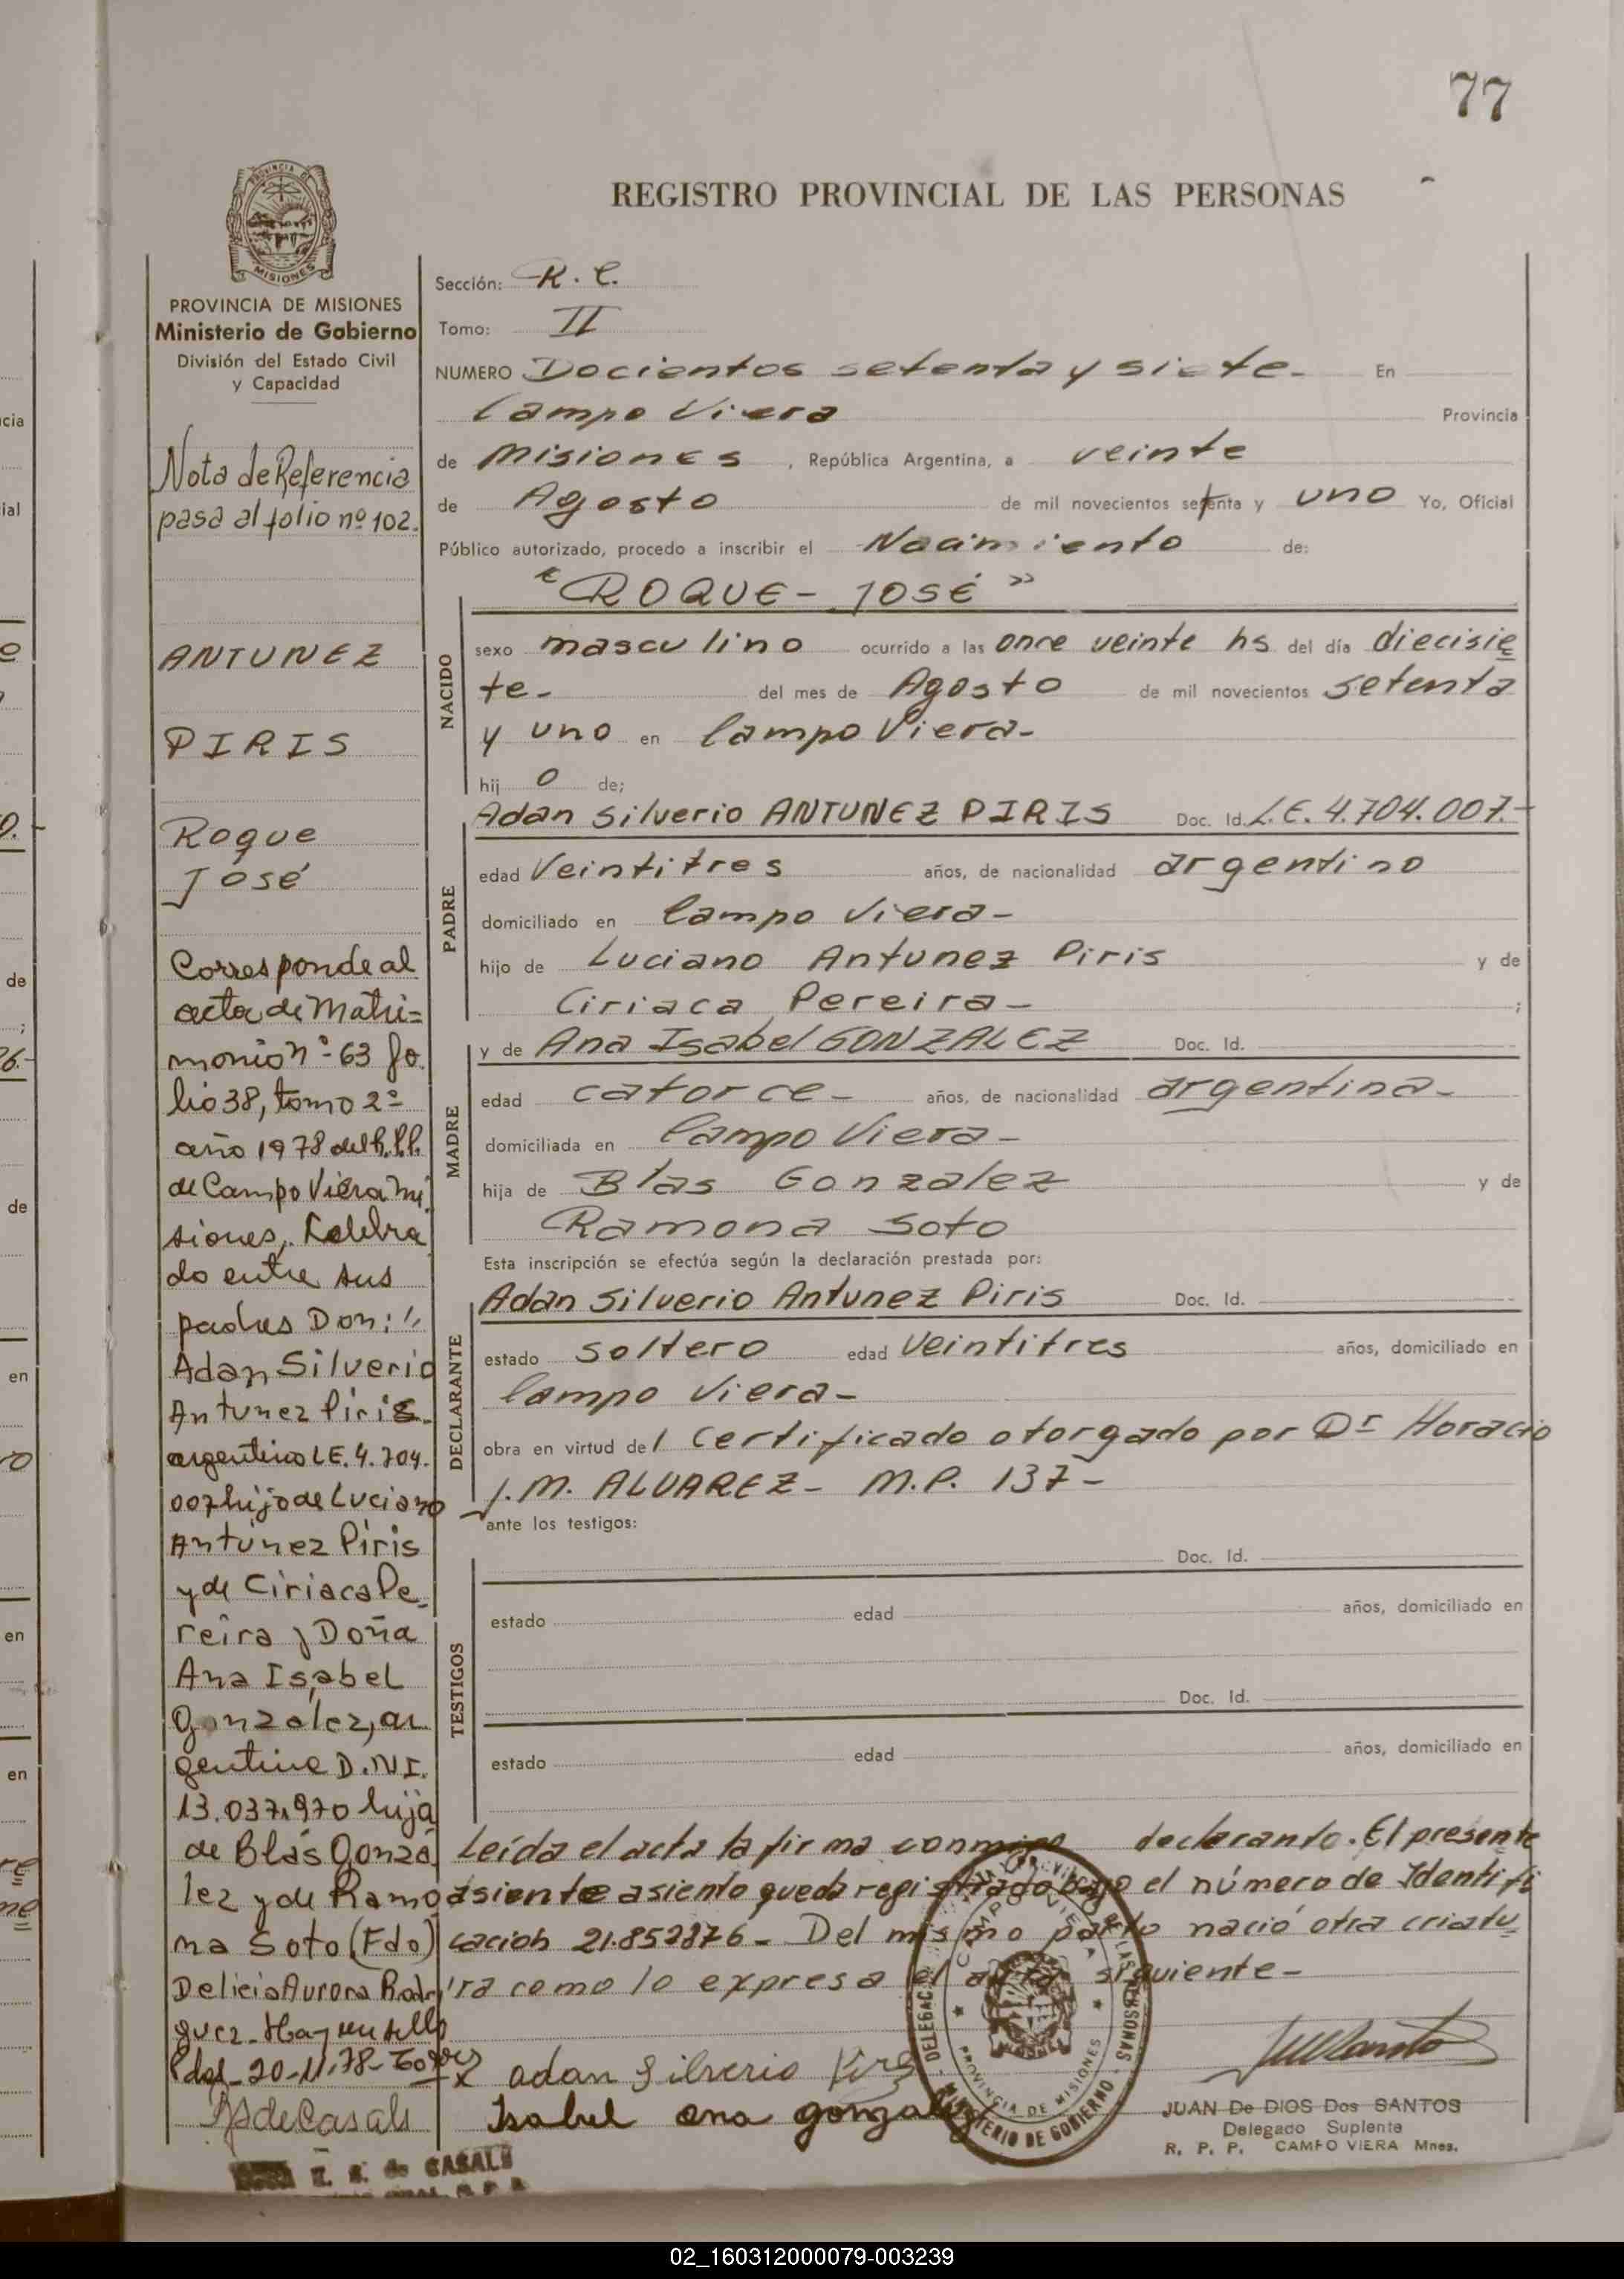 77
REGISTRO PROVINCIAL DE LAS PERSONAS
PROVINCIA DE MISIONES
Ministerio de Gobierno
División del Estado Civil
y Capacidad
Nota de Referencia
pasa al folio nº 102.
ANTUNEZ
PIRIS
Roque
José
Corresponde al
acta de Matri=
monio nº 63 fo
lio 38, tomo 2º
año 1978 del
de Campo Viera Mi
siones, Celebra
do entre sus
padres Don:
Adan Silverio
Antunez Piris
argentino LE. 4.704.
007 hijo de Luciano
Antúnez Piris
y de Ciriaca Pe
reira y Doña
Ana Isabel
Gonzalez, ar
gentina D.NI.
13.037.970 hija
de Blás Gonzá
lez y de Ramo
na Soto (Fdo)
Delicia Aurora Rodri
guez - Hay un sello
Pdas - 20-11-78-
Sección: R. C.
Tomo: II
NUMERO Docientos setenta y siete - En
Campo Viera Provincia
de Misiones, República Argentina, a veinte
de Agosto de mil novecientos setenta y uno Yo, Oficial
Público autorizado, procedo a inscribir el Nacimiento de:
"ROQUE - JOSÉ"
NACIDO
sexo masculino ocurrido a las once veinte hs del día diecisie
te - del mes de Agosto de mil novecientos setenta
y uno en Campo Viera -
hij o de;
PADRE
Adan Silverio ANTUNEZ PIRIS Doc. Id. L.E. 4.704.007.-
edad Veintitres años, de nacionalidad argentino
domiciliado en Campo Viera -
hijo de Luciano Antunez Piris y de
Ciriaca Pereira - ;
MADRE
y de Ana Isabel GONZALEZ Doc. Id.
edad catorce - años, de nacionalidad argentina -
domiciliada en Campo Viera -
hija de Blas Gonzalez y de
Ramona Soto
Esta inscripción se efectúa según la declaración prestada por:
DECLARANTE
Adan Silverio Antunez Piris Doc. Id.
estado soltero edad Veintitres años, domiciliado en
Campo Viera -
obra en virtud del Certificado otorgado por Dr Horacio
J.M. ALVAREZ - M.P. 137 -
ante los testigos:
TESTIGOS
Doc. Id.
estado edad años, domiciliado en
Doc. Id.
estado edad años, domiciliado en
Leída el acta la firma conmigo declarante. El presente
asiente asiento queda registrado bajo el número de Identifi
cación 21.852876 - Del mismo parto nació otra criatu
ra como lo expresa el acta siguiente -
adan Silverio
Isabel ana gonzalez
JUAN De DIOS Dos SANTOS
Delegado Suplente
R. P. P. CAMPO VIERA Mnes.
de CASALS
02_160312000079-003239